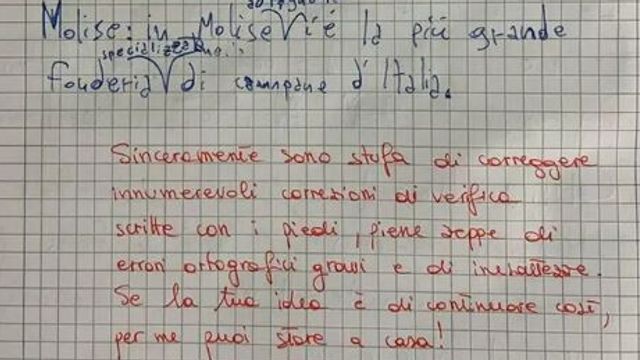 Molise: in Molise V'è la più grande
specializzata
fonderia V di campane d'Italia.
Sinceramente sono stufa di correggere
innumerevoli correzioni di verifica
scritte con i piedi, piene zeppe di
errori ortografici gravi e di inesattezze.
Se la tua idea è di continuare così,
per me puoi stare a casa!